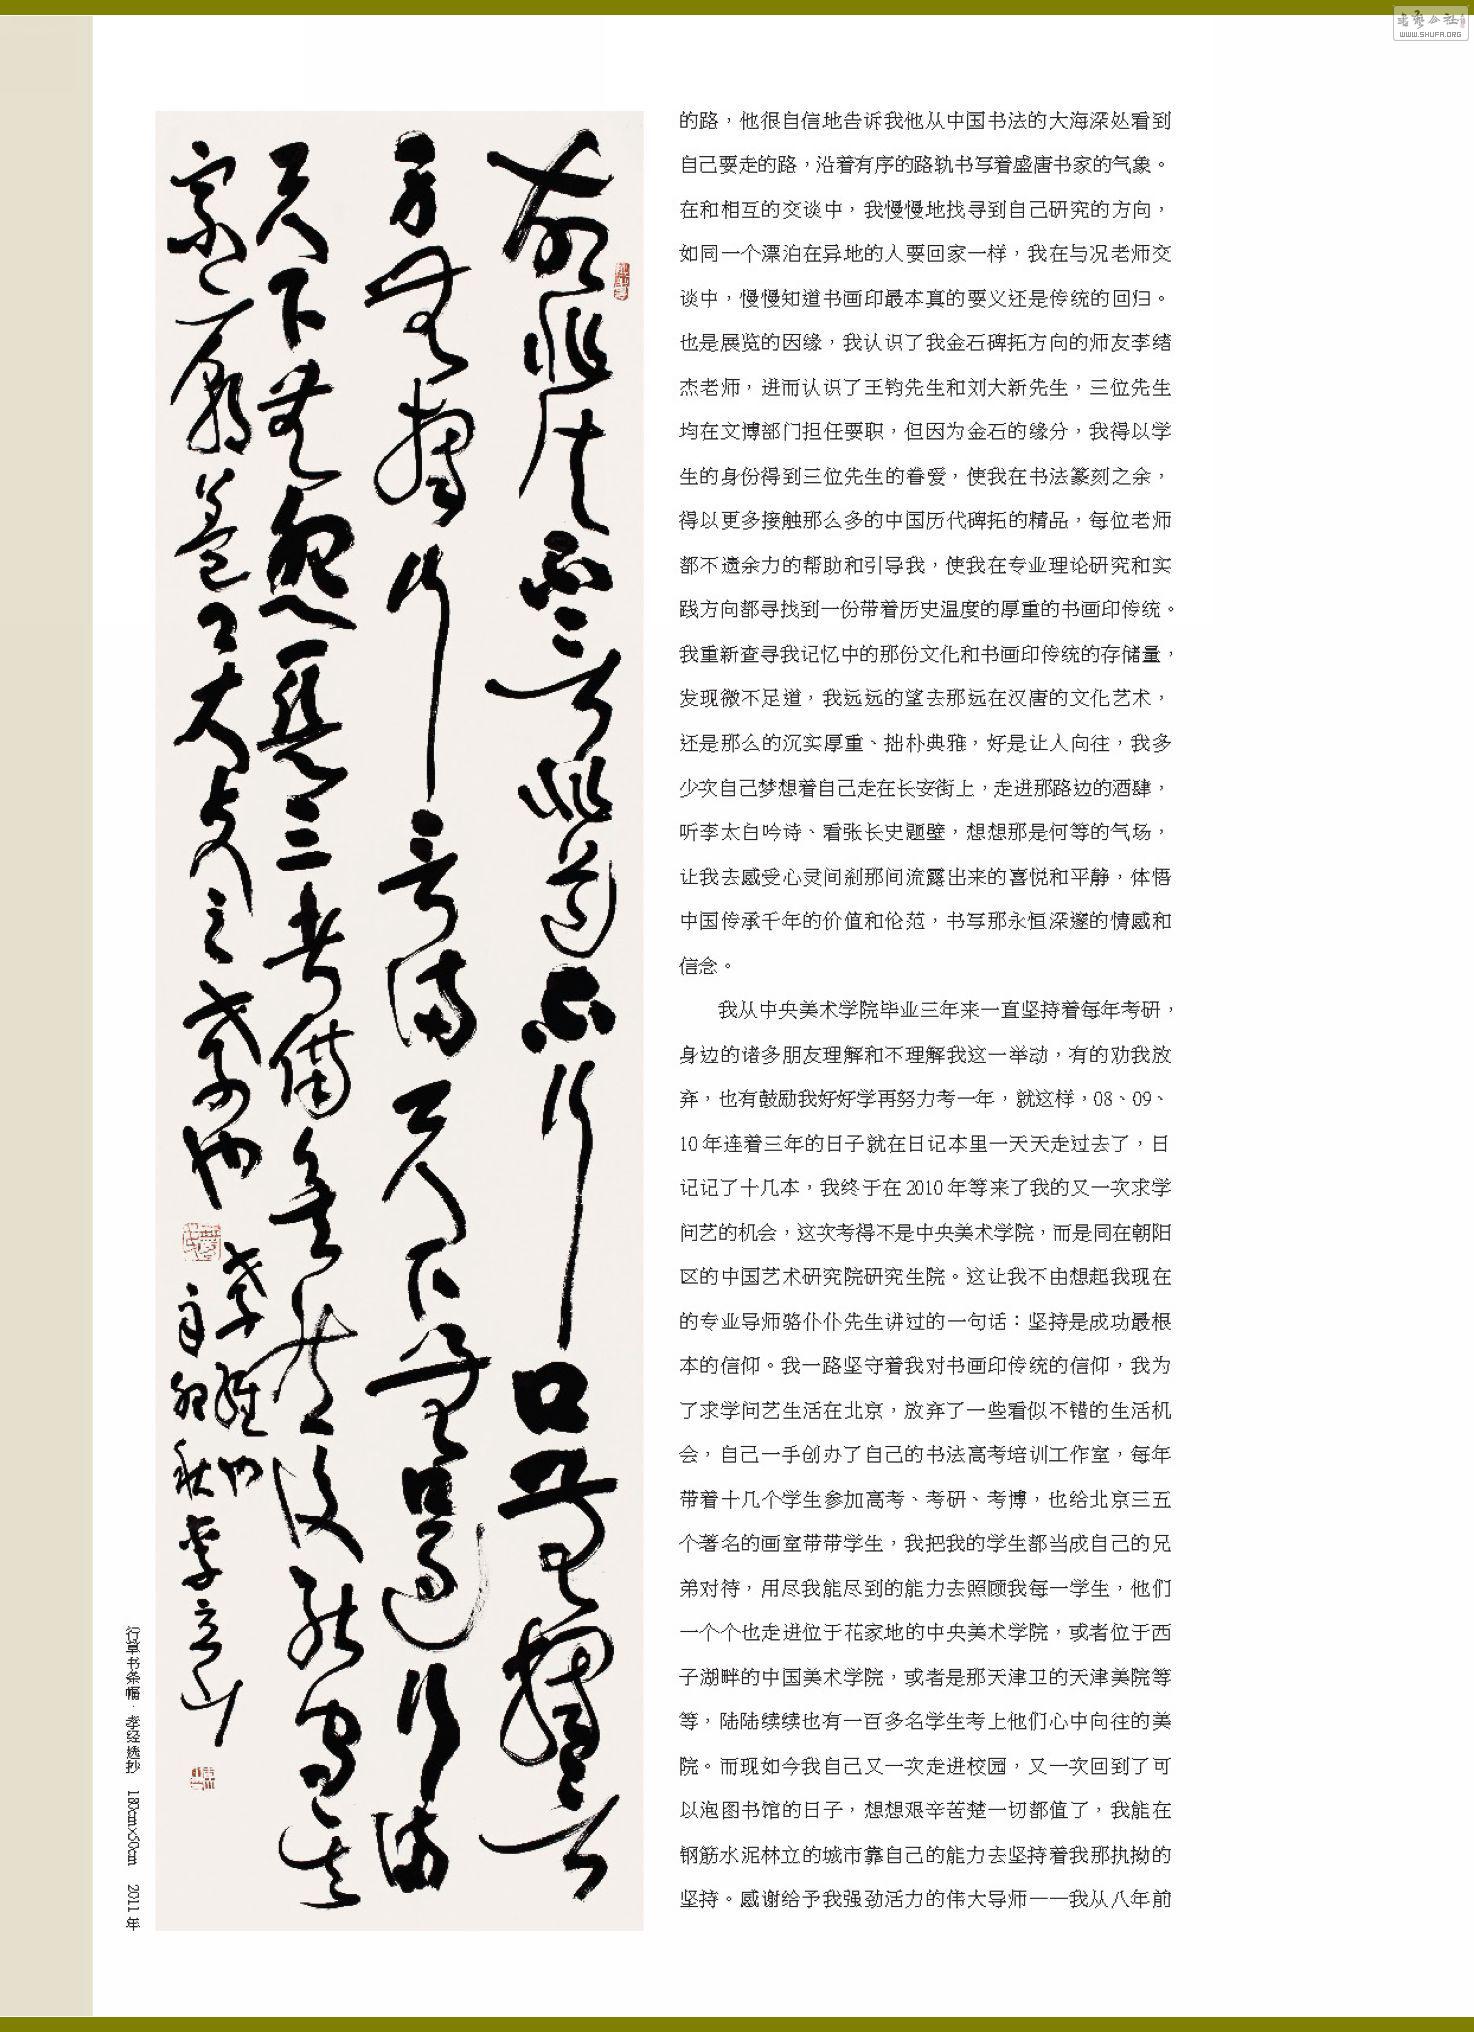 書藝公社
WWW.SHUFA.ORG
故非法不言非道不行口無擇言
身無擇行言滿天下無口過行滿
天下無怨惡三者備矣然後能守其
宗廟蓋卿大夫之孝也
孝經句
辛卯秋李
行草书条幅·孝经选抄 180cm×50cm 2011年
的路，他很自信地告诉我他从中国书法的大海深处看到
自己要走的路，沿着有序的路轨书写着盛唐书家的气象。
在和相互的交谈中，我慢慢地找寻到自己研究的方向，
如同一个漂泊在异地的人要回家一样，我在与况老师交
谈中，慢慢知道书画印最本真的要义还是传统的回归。
也是展览的因缘，我认识了我金石碑拓方向的师友李绪
杰老师，进而认识了王钧先生和刘大新先生，三位先生
均在文博部门担任要职，但因为金石的缘分，我得以学
生的身份得到三位先生的眷爱，使我在书法篆刻之余，
得以更多接触那么多的中国历代碑拓的精品，每位老师
都不遗余力的帮助和引导我，使我在专业理论研究和实
践方向都寻找到一份带着历史温度的厚重的书画印传统。
我重新查寻我记忆中的那份文化和书画印传统的存储量，
发现微不足道，我远远的望去那远在汉唐的文化艺术，
还是那么的沉实厚重、拙朴典雅，好是让人向往，我多
少次自己梦想着自己走在长安街上，走进那路边的酒肆，
听李太白吟诗、看张长史题壁，想想那是何等的气场，
让我去感受心灵间刹那间流露出来的喜悦和平静，体悟
中国传承千年的价值和伦范，书写那永恒深邃的情感和
信念。
我从中央美术学院毕业三年来一直坚持着每年考研，
身边的诸多朋友理解和不理解我这一举动，有的劝我放
弃，也有鼓励我好好学再努力考一年，就这样，08、09、
10 年连着三年的日子就在日记本里一天天走过去了，日
记记了十几本，我终于在 2010 年等来了我的又一次求学
问艺的机会，这次考得不是中央美术学院，而是同在朝阳
区的中国艺术研究院研究生院。这让我不由想起我现在
的专业导师骆仆仆先生讲过的一句话：坚持是成功最根
本的信仰。我一路坚守着我对书画印传统的信仰，我为
了求学问艺生活在北京，放弃了一些看似不错的生活机
会，自己一手创办了自己的书法高考培训工作室，每年
带着十几个学生参加高考、考研、考博，也给北京三五
个著名的画室带带学生，我把我的学生都当成自己的兄
弟对待，用尽我能尽到的能力去照顾我每一学生，他们
一个个也走进位于花家地的中央美术学院，或者位于西
子湖畔的中国美术学院，或者是那天津卫的天津美院等
等，陆陆续续也有一百多名学生考上他们心中向往的美
院。而现如今我自己又一次走进校园，又一次回到了可
以泡图书馆的日子，想想艰辛苦楚一切都值了，我能在
钢筋水泥林立的城市靠自己的能力去坚持着我那执拗的
坚持。感谢给予我强劲活力的伟大导师——我从八年前